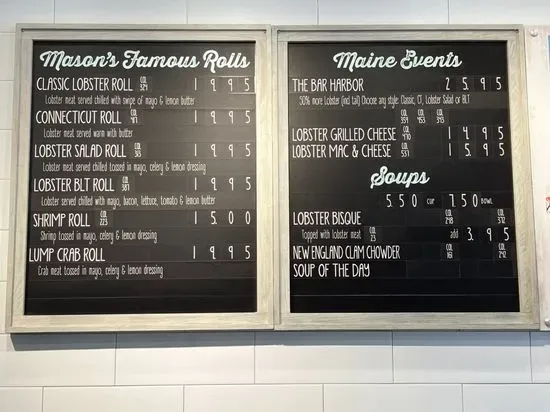 Mason's Famous Rolls
CLASSIC LOBSTER ROLL CAL 379 19.95
Lobster meat served chilled with swipe of mayo & lemon butter
CONNECTICUT ROLL CAL 19.95
Lobster meat served warm with butter
LOBSTER SALAD ROLL CAL 19.95
Lobster meat served chilled tossed in mayo, celery & lemon dressing
LOBSTER BLT ROLL CAL 19.95
Lobster served chilled with mayo, bacon, lettuce, tomato & lemon butter
SHRIMP ROLL CAL 223 15.00
Shrimp tossed in mayo, celery & lemon dressing
LUMP CRAB ROLL 19.95
Crab meat tossed in mayo, celery & lemon dressing
Maine Events
THE BAR HARBOR 25.95
50% more Lobster (incl tail) Choose any style: Classic, CT, Lobster Salad or BLT
CAL CAL CAL
LOBSTER GRILLED CHEESE CAL 14.95
LOBSTER MAC & CHEESE CAL 15.95
Soups
5.50 CUP 7.50 BOWL
LOBSTER BISQUE CAL 248 CAL 372
Topped with lobster meat CAL 23 add 3.95
NEW ENGLAND CLAM CHOWDER CAL 161 CAL 242
SOUP OF THE DAY